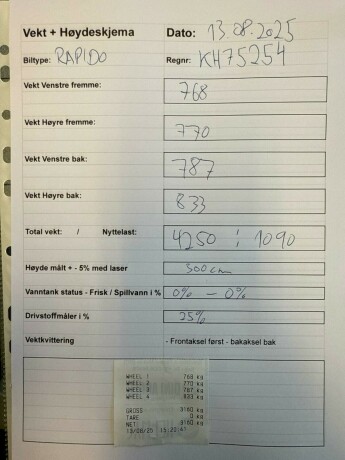 Vekt + Høydeskjema Dato: 13.08.2025
Biltype: RAPIDO Regnr: KH75254
Vekt Venstre fremme: 768
Vekt Høyre fremme: 770
Vekt Venstre bak: 787
Vekt Høyre bak: 833
Total vekt: / Nyttelast: 4250 / 1090
Høyde målt + - 5% med laser 300cm
Vanntank status - Frisk / Spillvann i % 0% - 0%
Drivstoffmåler i % 25%
Vektkvittering - Frontaksel først - bakaksel bak
WHEEL 1 768 kg
WHEEL 2 770 kg
WHEEL 3 787 kg
WHEEL 4 833 kg
GROSS 3160 kg
TARE 0 kg
NET: 3160 kg
13/08/25